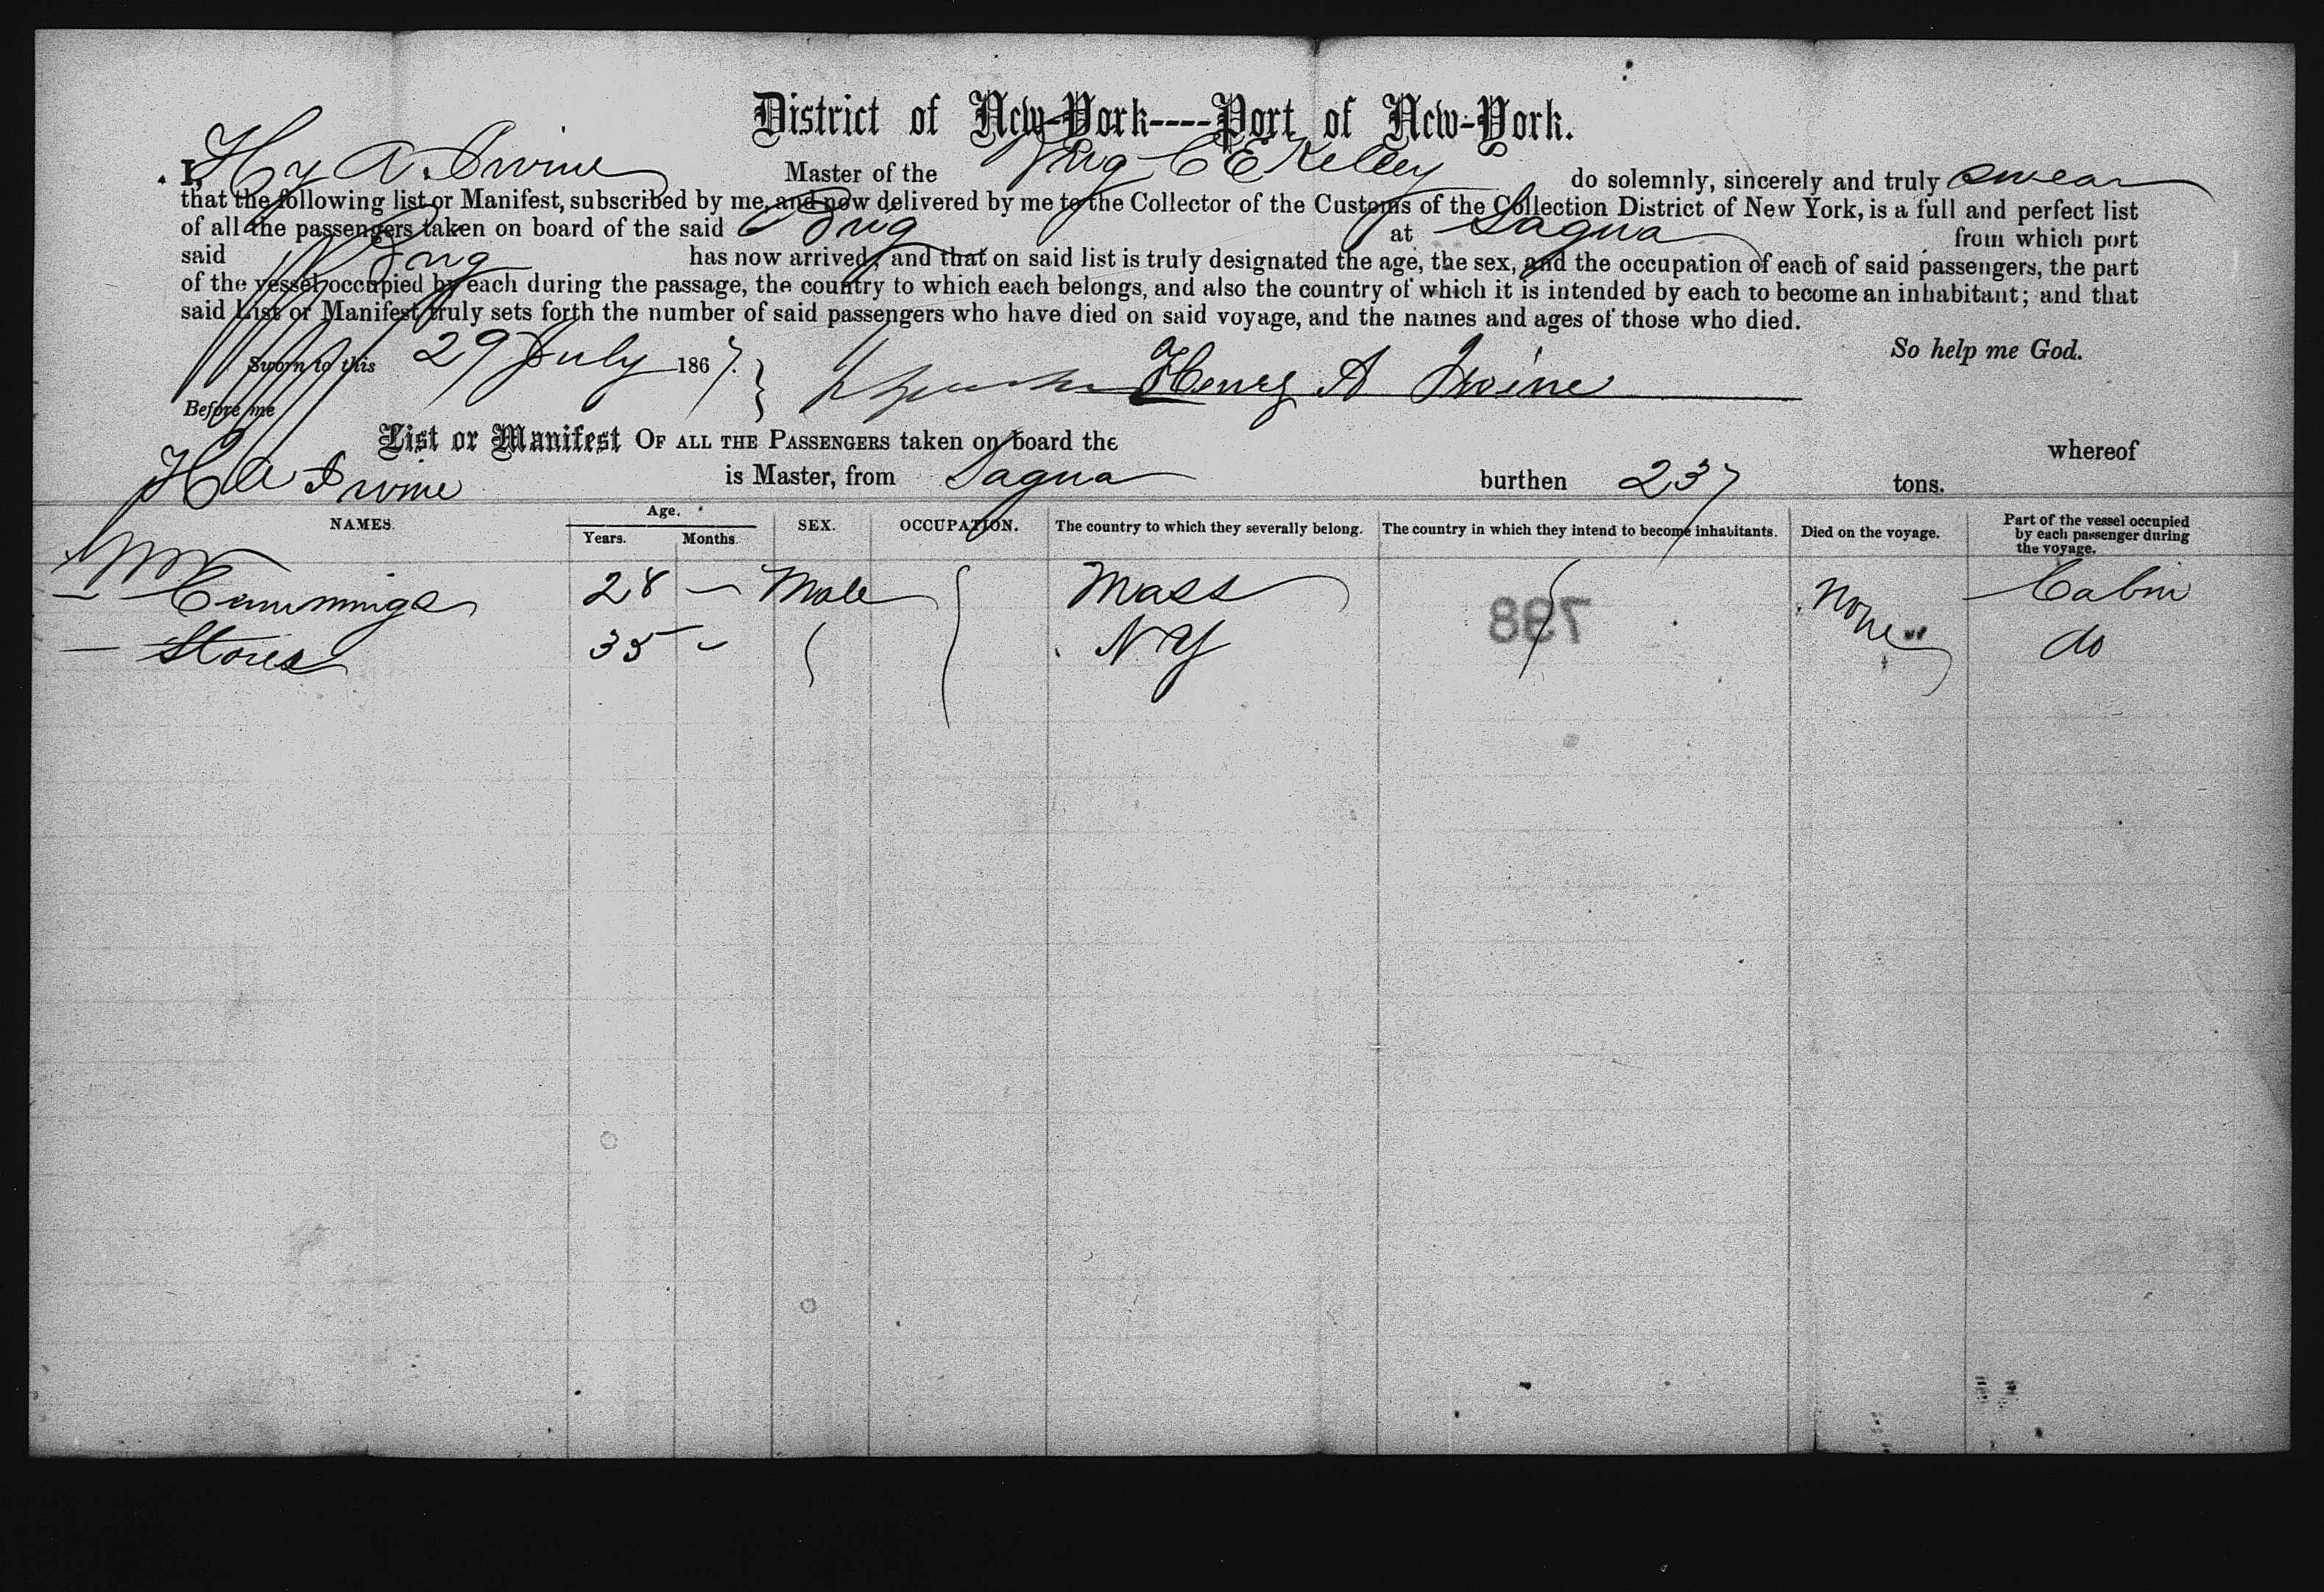 District of New-York----Port of New-York.
I, Hy A. Irvine Master of the Brig C E Kelley do solemnly, sincerely and truly swear
that the following list or Manifest, subscribed by me, and now delivered by me to the Collector of the Customs of the Collection District of New York, is a full and perfect list
of all the passengers taken on board of the said Brig at Sagua from which port
said Brig has now arrived; and that on said list is truly designated the age, the sex, and the occupation of each of said passengers, the part
of the vessel occupied by each during the passage, the country to which each belongs, and also the country of which it is intended by each to become an inhabitant; and that
said List or Manifest truly sets forth the number of said passengers who have died on said voyage, and the names and ages of those who died.
So help me God.
Sworn to this 29 July 1867. Henry A Irvine
Before me
List or Manifest OF ALL THE PASSENGERS taken on board the whereof
H A Irvine is Master, from Sagua burthen 237 tons.
NAMES. Age. Years. Months. SEX. OCCUPATION. The country to which they severally belong. The country in which they intend to become inhabitants. Died on the voyage. Part of the vessel occupied by each passenger during the voyage.
— Cummings 28 — Male Mass None Cabin
— 35 N Y do
798